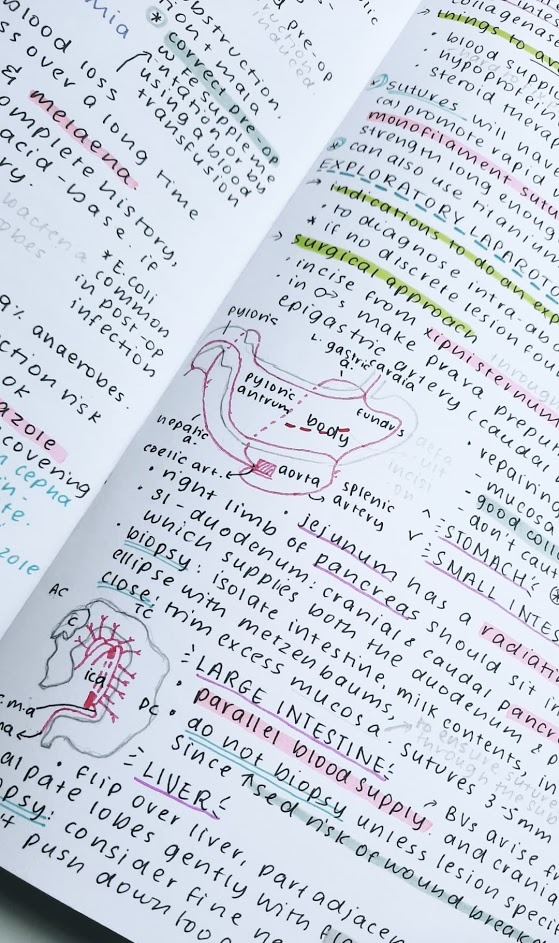 mia
blood loss
ss over a long time
& melaena
omplete history,
acid-base. if
ry.
obstruction.
tion + maln
* correct pre-op
using a nor by
a blood
transfusion
pre-op
* E.coli
common
in post-op
infection
bacteria
9% anaerobes.
ction risk
ok
azole
covering
n cepha
in-
te.
azole
collagenase
→ things to av
• blood suppl
• hypoprotein
• steroid therap
sutures will have
(a) promote rapid
monofilament sutu
strength long enoug
can also use titanium
EXPLORATORY LAPAROT
→ indications to do an exp
• to diagnose intra-abd
* if no discrete lesion foun
→ surgical approach
• incise from xiphisternum
through
• in ♂s make prava preput
epigastric artery (caudal
pyloric
L. gastric a.
cardia
pyloric antrum
fundus
body
hepatic a.
coelic art.
aorta
splenic artery
• repairing
mucosa
- good coll
- don't caut
STOMACH
SMALL INTES
• jejunum has a radiatin
• right limb of pancreas should sit in
• SI - duodenum: cranial & caudal pancre
which supplies both the duodenum & p
• biopsy: isolate intestine, milk contents, in
ellipse with metzenbaums,
close: trim excess mucosa. sutures 3-5mm
to ensure sutur
through the sub
AC
TC
C
ica
DC
c.m.a
ma
LARGE INTESTINE:
• parallel blood supply
↗ BVs arise fr
and crania
• do not biopsy unless lesion speci
since ↑sed risk of wound break
LIVER
• flip over liver, part adjacen
alpate lobes gently with f
opsy: consider fine ne
't push down too